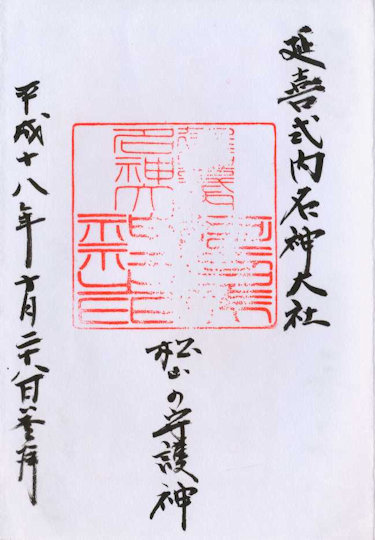 延喜式内名神大社
松山の守護神
平成十八年十月二十八日参拝